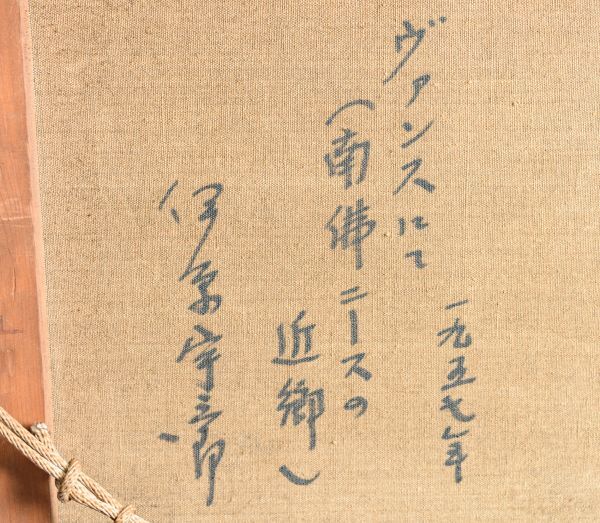 ヴァンスにて
一九五七年
(南佛ニースの
近郷)
伊原宇三郎